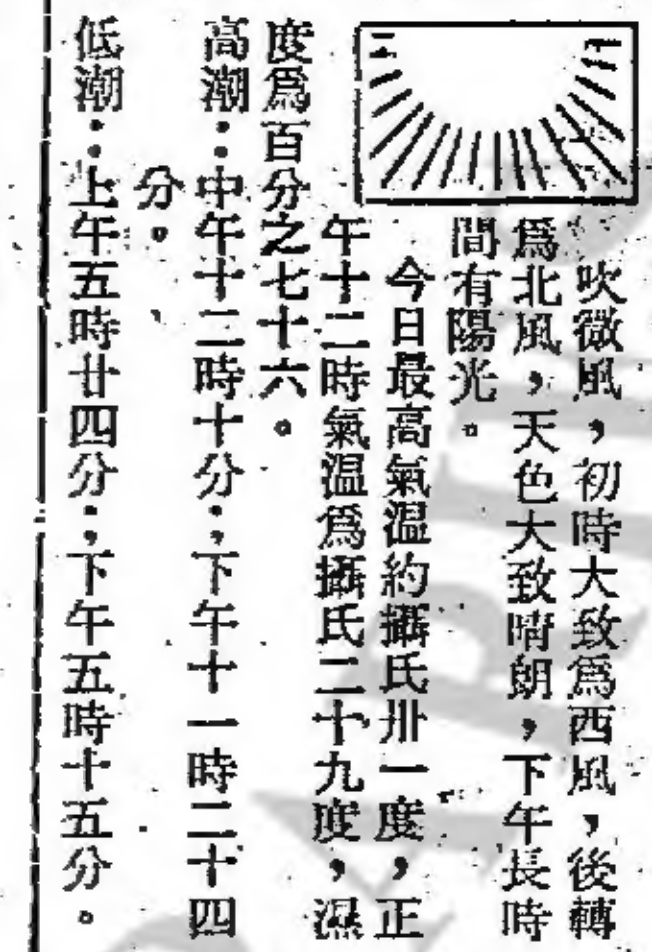 吹微風，初時大致爲西風，後轉
爲北風，天色大致晴朗，下午長時
間有陽光。
今日最高氣温約攝氏卅一度，正
午十二時氣温爲攝氏二十九度，濕
度爲百分之七十六。
高潮：中午十二時十分；下午十一時二十四
分。
低潮：上午五時廿四分；下午五時十五分。